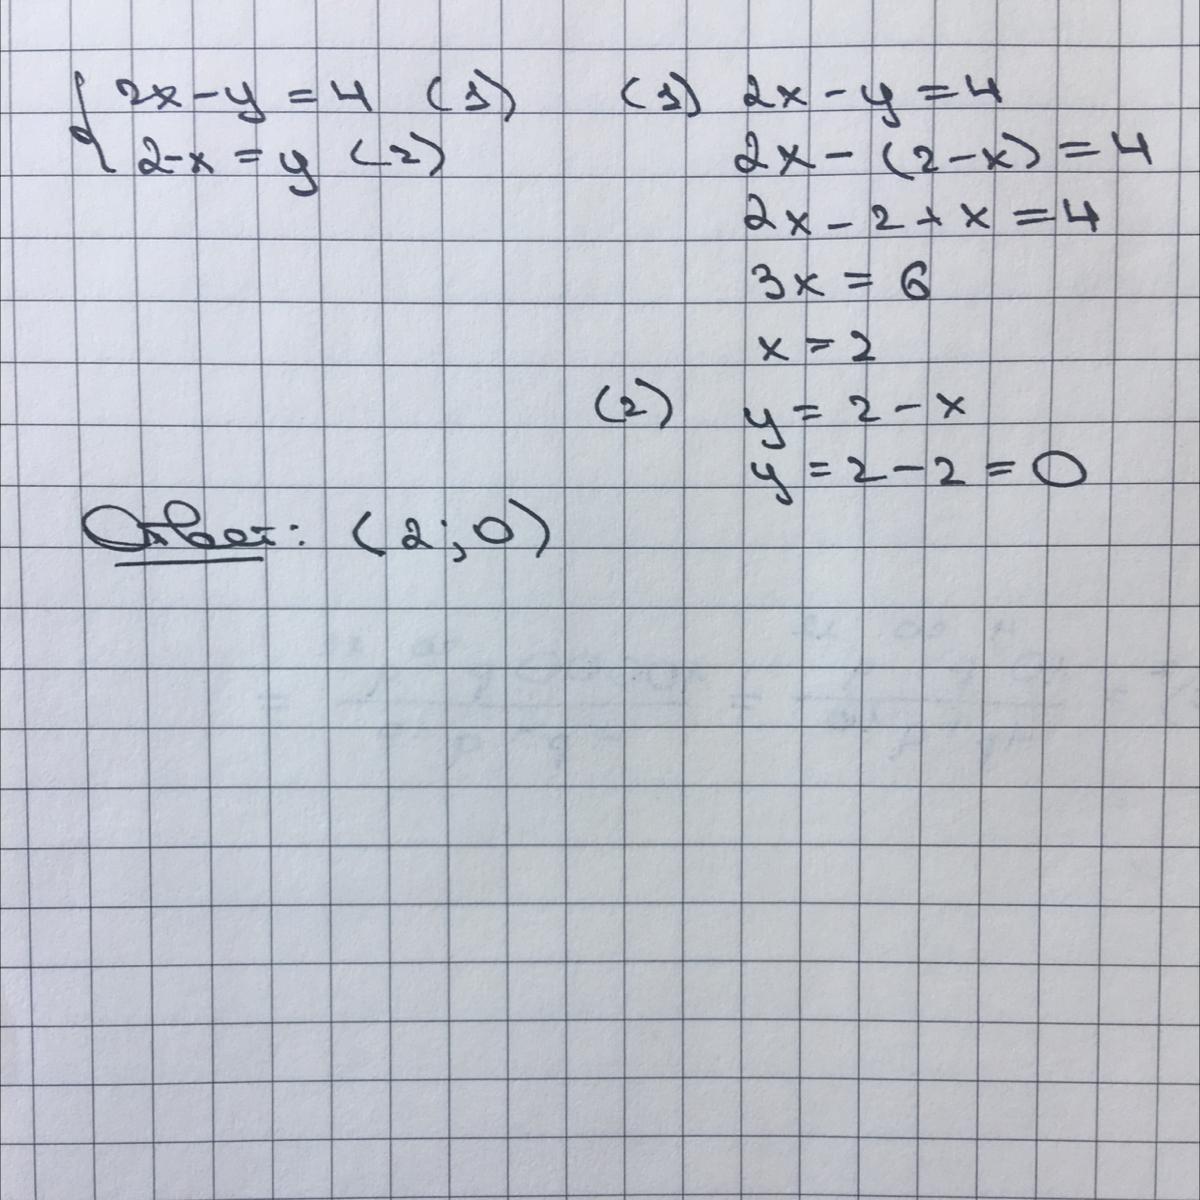 2x - y = 4 (1)
2 - x = y (2)
(1) 2x - y = 4
2x - (2 - x) = 4
2x - 2 + x = 4
3x = 6
x = 2
(2) y = 2 - x
y = 2 - 2 = 0
Ответ: (2; 0)